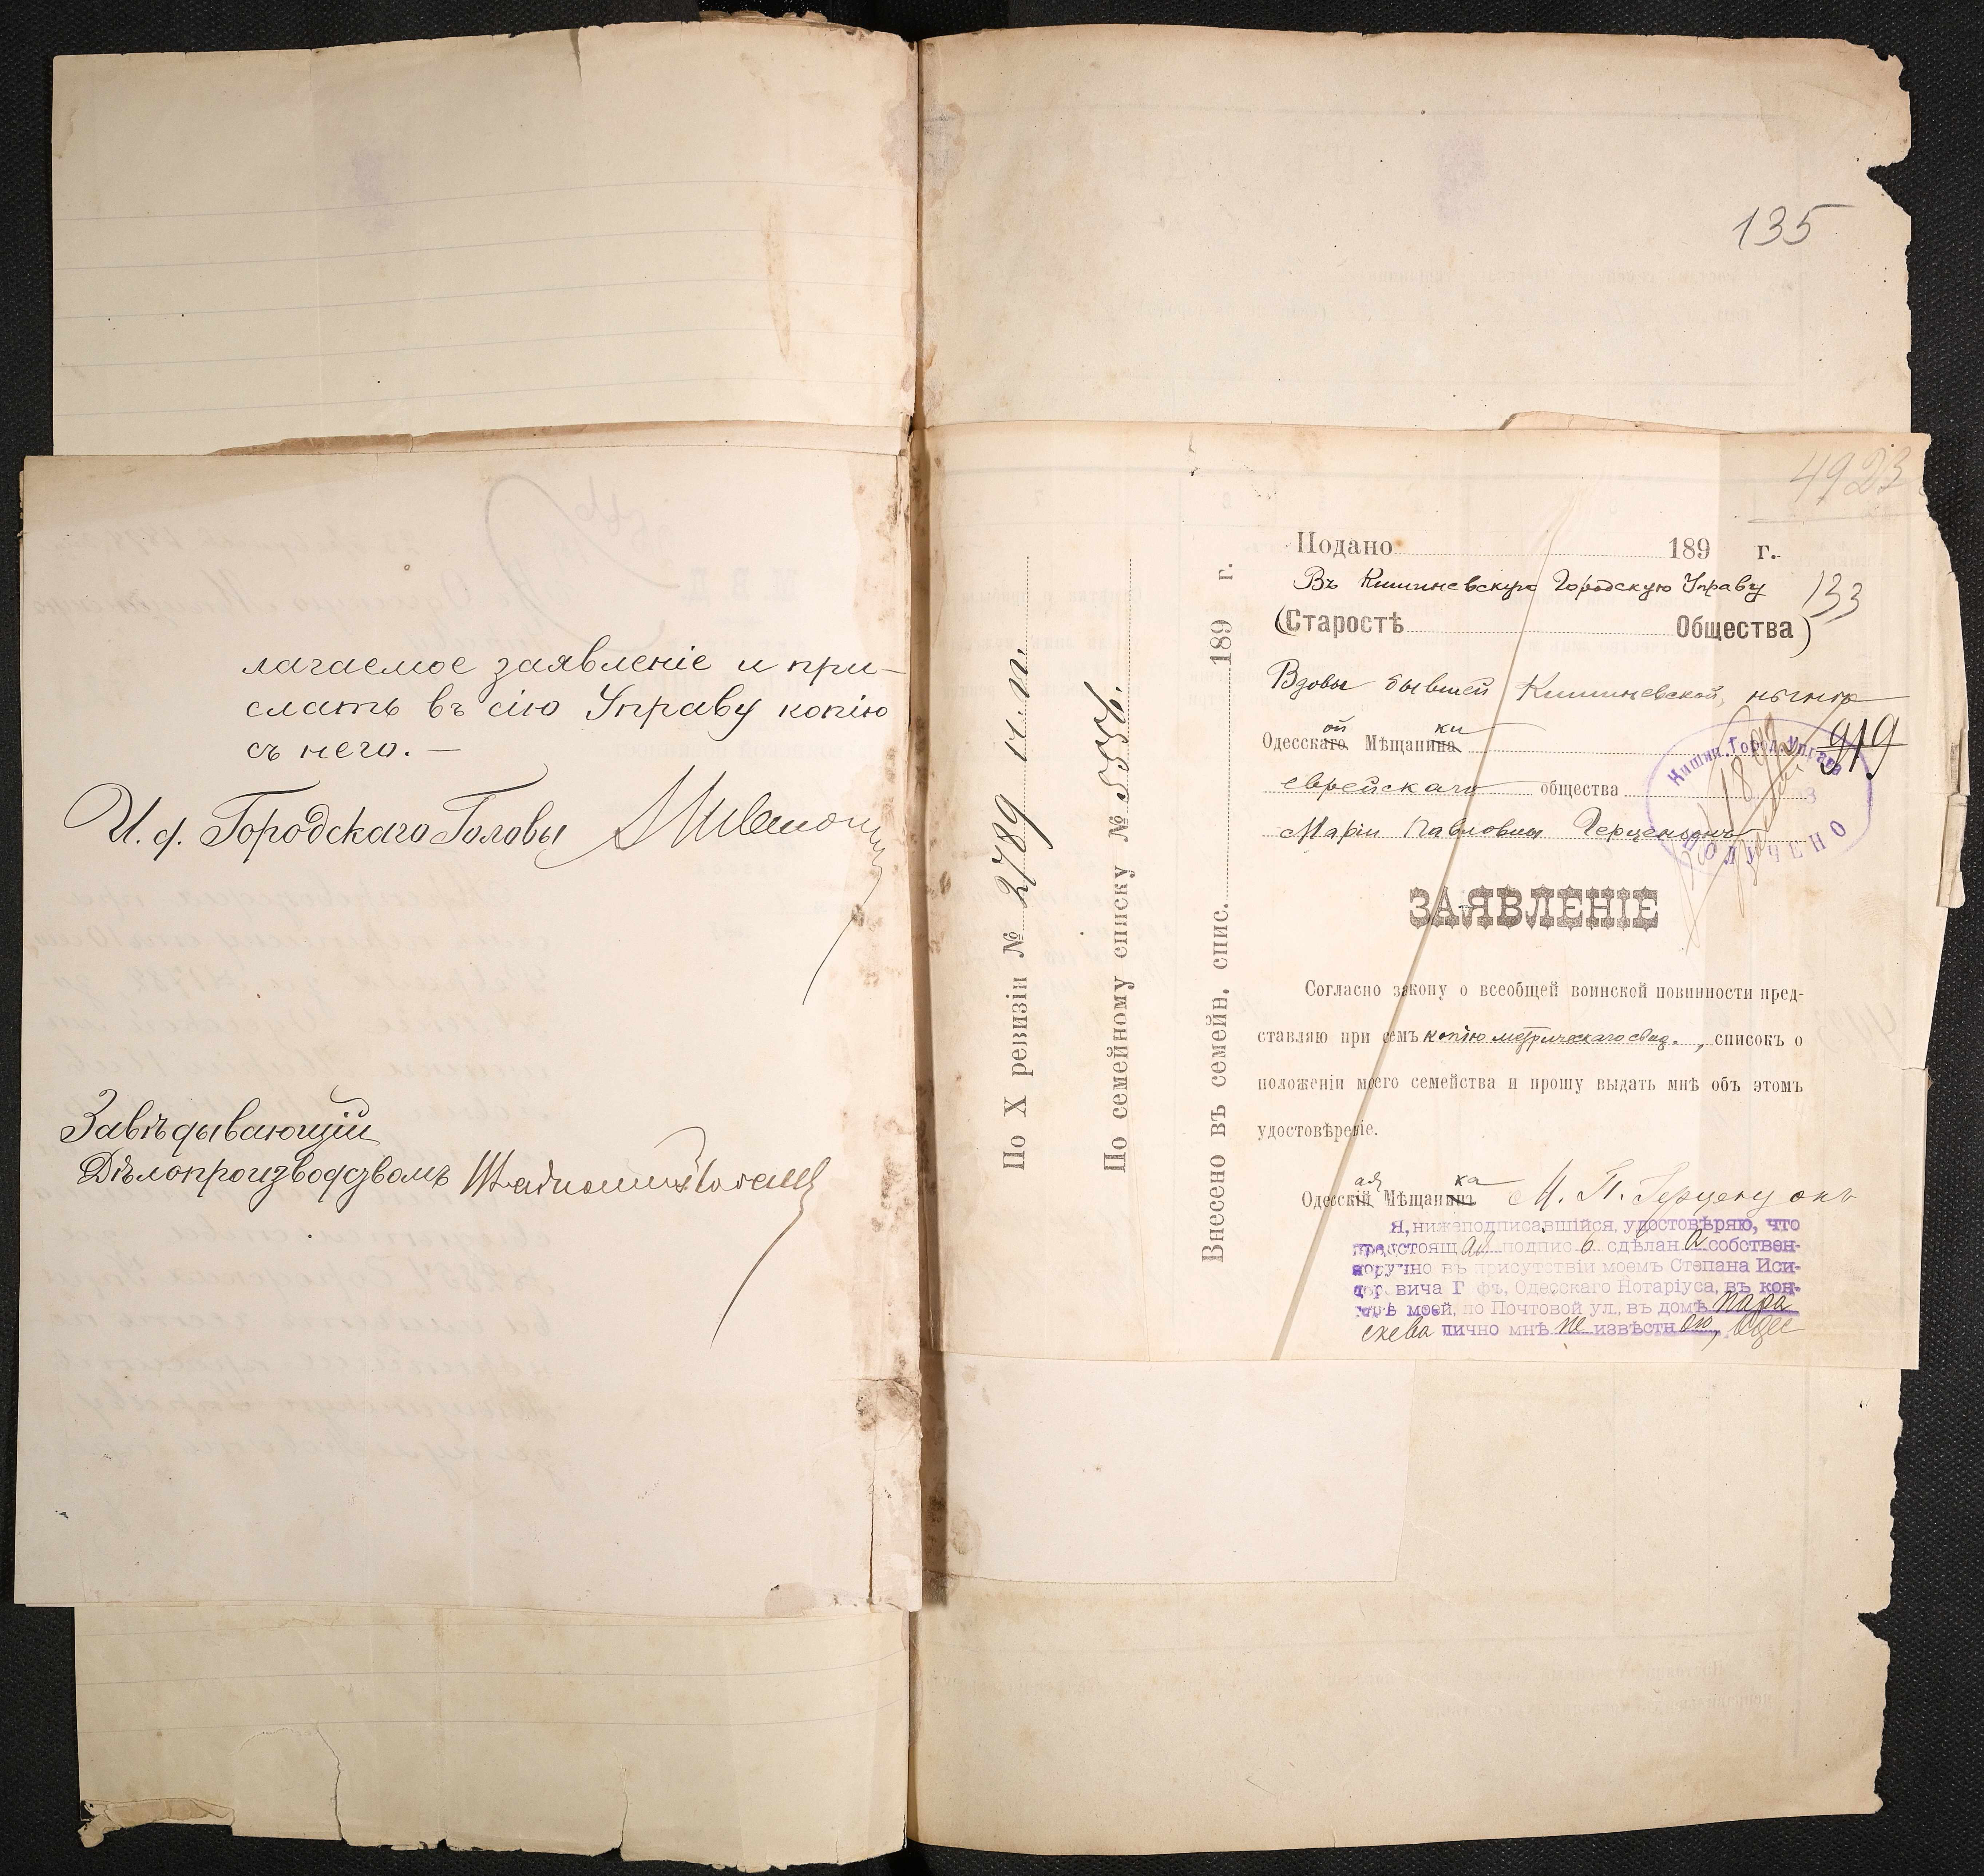 лагаемое заявленіе и при-
слать въ сію Управу копію
съ него. —
И. ф. Городскаго Головы
Завѣдывающій
Дѣлопроизводствомъ
135
4923
По X ревизіи № 2789 н. п.
По семейному списку № 5556.
Внесено въ семейн. спис. 189 г.
Подано 189 г.
Въ Кишиневскую Городскую Управу
133
(Старостѣ Общества)
Вдовы бывшей Кишиневской, нынѣ
Одесскаго ой Мѣщанина ки
919
еврейскаго общества
Маріи Павловны Герцензонъ
Кишин. Город. Управа
ПОЛУЧЕНО
ЗАЯВЛЕНІЕ
Согласно закону о всеобщей воинской повинности пред-
ставляю при семъ копію метрическаго свид. , списокъ о
положеніи моего семейства и прошу выдать мнѣ объ этомъ
удостовѣреніе.
Одесскій ая Мѣщанинъ ка М. П. Герцензонъ
Я, нижеподписавшійся, удостовѣряю, что
предстоящая подпись сдѣлана собствен-
норучно въ присутствіи моемъ Степана Иси-
доровича Г фъ, Одесскаго Нотаріуса, въ кон-
торѣ моей, по Почтовой ул., въ домѣ Пара
скева лично мнѣ не извѣстною, Одес